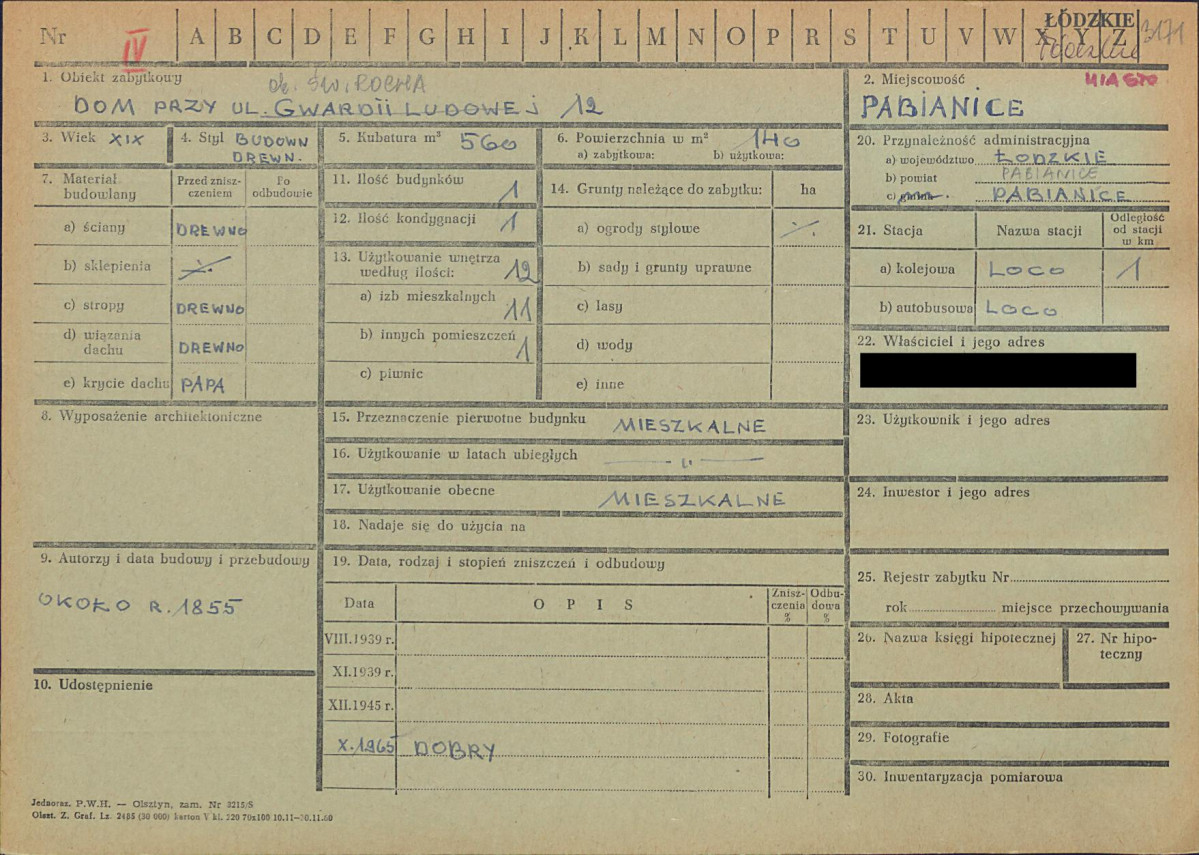 Nr IV A B C D E F G H I J K L M N O P R S T U V W X Y Z
ŁÓDZKIE
3171
1. Obiekt zabytkowy
ob. ŚW. ROCHA
DOM PRZY UL. GWARDII LUDOWEJ 12
2. Miejscowość
MIASTO
PABIANICE
3. Wiek XIX
4. Styl BUDOWN
DREWN.
5. Kubatura m³ 560
6. Powierzchnia w m² 140
a) zabytkowa: b) użytkowa:
7. Materiał budowlany
Przed zniszczeniem
Po odbudowie
a) ściany DREWNO
b) sklepienia ·/.
c) stropy DREWNO
d) wiązania dachu DREWNO
e) krycie dachu PAPA
8. Wyposażenie architektoniczne
9. Autorzy i data budowy i przebudowy
OKOŁO R. 1855
10. Udostępnienie
11. Ilość budynków 1
12. Ilość kondygnacji 1
13. Użytkowanie wnętrza
według ilości: 12
a) izb mieszkalnych 11
b) innych pomieszczeń 1
c) piwnic
14. Grunty należące do zabytku: ha
a) ogrody stylowe ·/.
b) sady i grunty uprawne
c) lasy
d) wody
e) inne
15. Przeznaczenie pierwotne budynku MIESZKALNE
16. Użytkowanie w latach ubiegłych — „ —
17. Użytkowanie obecne MIESZKALNE
18. Nadaje się do użycia na
19. Data, rodzaj i stopień zniszczeń i odbudowy
Data OPIS Zniszczenia % Odbudowa %
VIII.1939 r.
XI.1939 r.
XII.1945 r.
X.1965 DOBRY
20. Przynależność administracyjna
a) województwo ŁODZKIE
b) powiat PABIANICE
c) PABIANICE
21. Stacja Nazwa stacji Odległość od stacji w km
a) kolejowa LOCO 1
b) autobusowa LOCO
22. Właściciel i jego adres
23. Użytkownik i jego adres
24. Inwestor i jego adres
25. Rejestr zabytku Nr
rok miejsce przechowywania
26. Nazwa księgi hipotecznej
27. Nr hipoteczny
28. Akta
29. Fotografie
30. Inwentaryzacja pomiarowa
Jednoraz. P.W.H. — Olsztyn, zam. Nr 3215/S
Olszt. Z. Graf. Lz. 2485 (30 000) karton V kl. 220 70x100 10.11—30.11.60